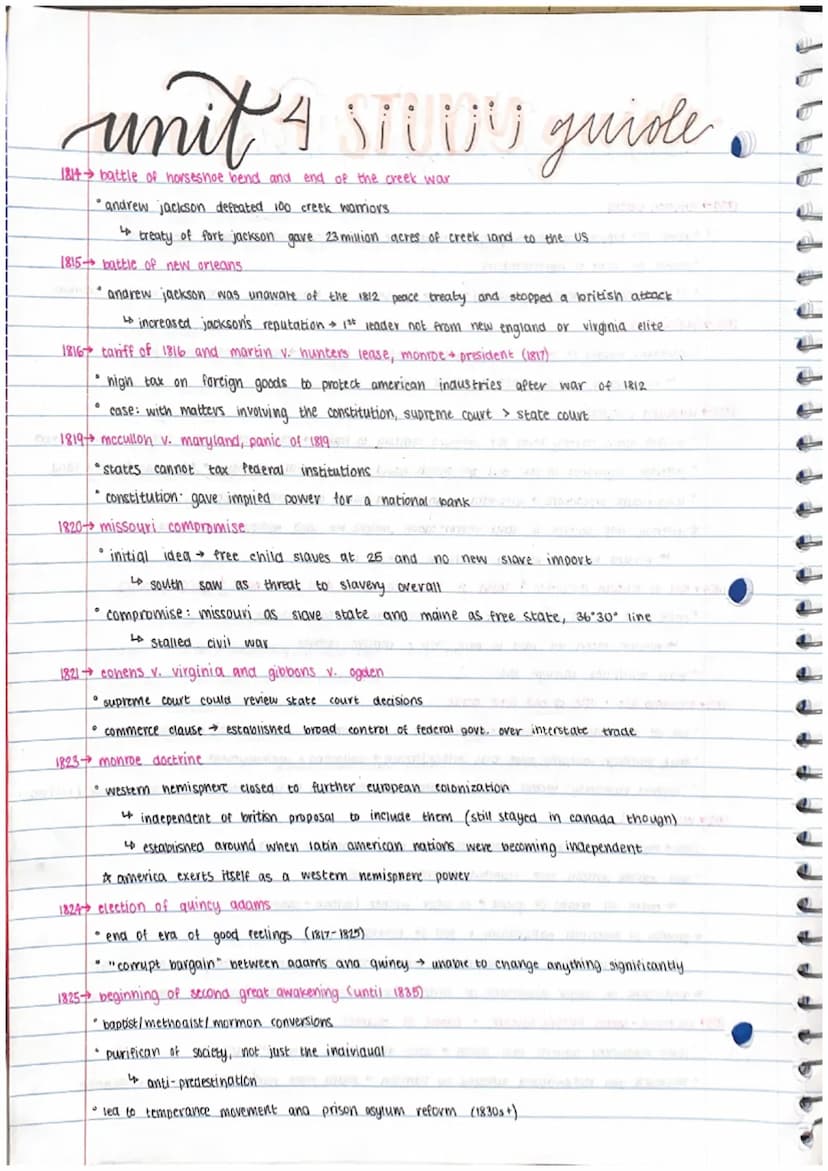 unit 4 study guide
1814→ battle of horseshoe bend and end of the creek war
° andrew jackson defeated 100 creek warriors
↳ treaty of fort jackson gave 23 million acres of creek land to the US
1815→ battle of new orleans
° andrew jackson was unaware of the 1812 peace treaty and stopped a british attack
↳ increased jackson's reputation → 1st leader not from new england or virginia elite
1816→ tariff of 1816 and martin v. hunters lease, monroe → president (1817)
° high tax on foreign goods to protect american industries after war of 1812
° case: with matters involving the constitution, supreme court > state court
1819→ mcculloh v. maryland, panic of 1819
° states cannot tax federal institutions
° constitution gave implied power for a national bank
1820→ missouri compromise
° initial idea → free child slaves at 25 and no new slave import
↳ south saw as threat to slavery overall
° compromise: missouri as slave state and maine as free state, 36°30° line
↳ stalled civil war
1821→ cohens v. virginia and gibbons v. ogden
° supreme court could review state court decisions
° commerce clause → established broad control of federal govt. over interstate trade
1823→ monroe doctrine
° western hemisphere closed to further european colonization
↳ independent of british proposal to include them (still stayed in canada though)
↳ established around when latin american nations were becoming independent
☆ america exerts itself as a western hemisphere power
1824→ election of quincy adams
° end of era of good feelings (1817-1825)
° "corrupt bargain" between adams and quincy → unable to change anything significantly
1825→ beginning of second great awakening (until 1835)
° baptist/methodist/mormon conversions
° purifican of society, not just the individual
↳ anti-predestination
° led to temperance movement and prison asylum reform (1830s+)